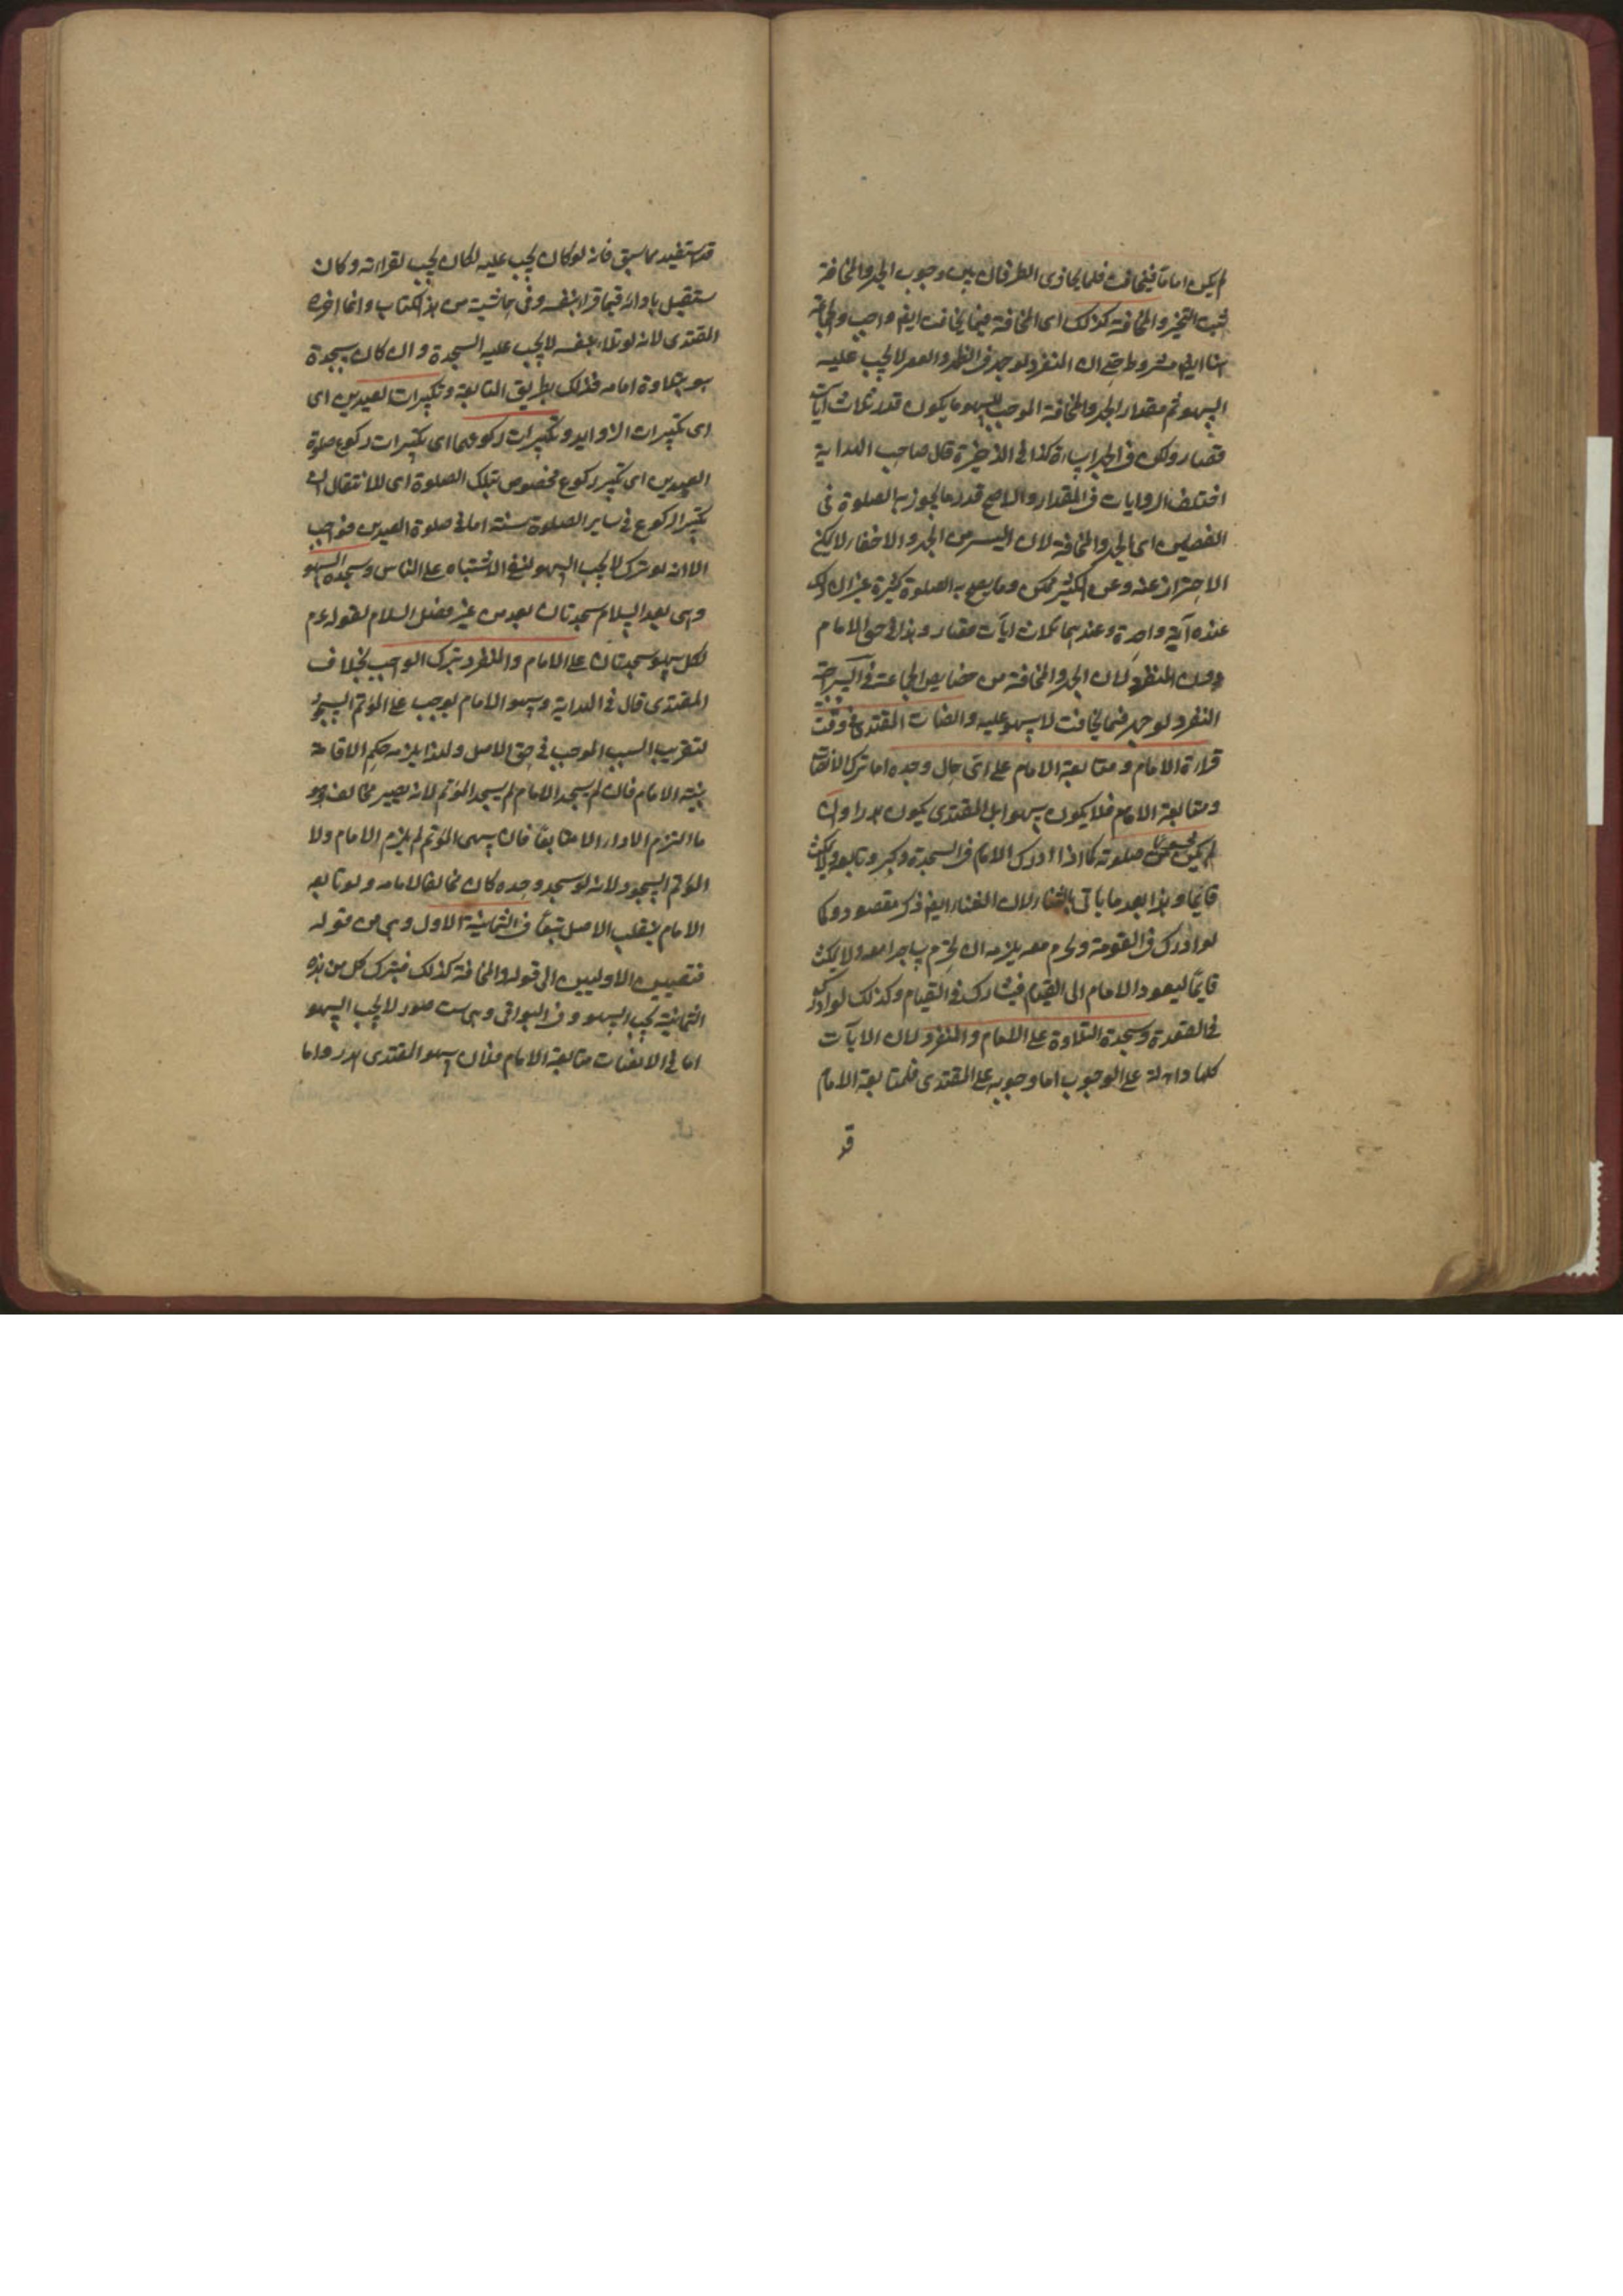 لم يكن اماما فيخافت فلما يحاذى الطرفان بين وجوب الجهر والمخافتة
ثبت التخير والمخافتة كذلك اى المخافتة فيما يخافت ايضا واجب والجماعة
هنا ايضا مشروط حتى ان المنفرد لو جهر فى الظهر والعصر لا يجب عليه
السهو ثم مقدار الجهر والمخافتة الموجب للسهو ما يكون قدر ثلاث آيات
قصار ولكن فى الجهر اساءة كذا فى الذخيرة قال صاحب الهداية
اختلف الروايات فى المقدار والاصح قدر ما يجوز به الصلوة فى
الفصلين اى الجهر والمخافتة لان اليسير من الجهر والاخفاء لا يمكن
الاحتراز عنه وعن الكثير ممكن وما يصح به الصلوة كثيرة غير ان ذلك
عنده آية واحدة وعندهما ثلاث آيات قصار وهذا فى حق الامام
دون المنفرد لان الجهر والمخافتة من خصايص الجماعة
المنفرد لو جهر فيما يخافت لا سهو عليه وانصات المقتدى فى وقت
قراءة الامام ومتابعة الامام على اى حال وجده اما ترك الانصات
ومتابعة الامام فلا يكون سهوا بل المقتدى يكون هدرا وان
لم يكن صلوته كما اذا ادرك الامام فى السجدة وكبر وتابعه ولا يمكث
قايما وهذا بعد ما ياتى بالثناء لان الثناء ايضا ذكر مقصود وكما
لو ادرك فى القومة وتحرم معه يلزمه ان يحرم ساجدا معه ولا يمكث
قايما ليعود الامام الى القيام فيشاركه فى القيام وكذلك لو ادرك
فى القعدة وسجدة التلاوة على الامام والمنفرد لان الآيات
كلها دالة على الوجوب اما وجوبه على المقتدى فلمتابعة الامام
قد
قد استفيد مما سبق فانه لو كان يجب عليه لكان يجب لقراءته وكان
ستقبل باداء فيما قرا بنفسه وفى حاشية من هذا الكتاب وانما اخره
المقتدى لانه لو تلا بنفسه لا يجب عليه السجدة وان كان سجدة
سهو بتلاوة امامه فذلك بطريق المتابعة وتكبيرات لعيدين اى
اى تكبيرات الزوايد وتكبيرات ركوعهما اى تكبيرات ركوع صلوة
العيدين اى تكبير ركوع مخصوص بتلك الصلوة اى للانتقال ان
تكبير الركوع فى ساير الصلوة سنة اما فى صلوة العيدين فواجب
الا انه لو ترك لا يجب السهو لنفى الاشتباه على الناس وسجدة السهو
وهى بعد السلام سجدتان بعد من غير فصل السلام لقوله عم
لكل سهو سجدتان على الامام والمنفرد بترك الواجب بخلاف
المقتدى قال فى الهداية وسهو الامام يوجب على المؤتم السجود
لتقريب السبب الموجب فى حق الاصل ولهذا يلزمه حكم الاقامة
بنية الامام فان لم يسجد الامام لم يسجد المؤتم لانه يصير مخالفا وهو
ما التزم الاداء الا متابعا فان سهى المؤتم لم يلزم الامام ولا
المؤتم السجود لانه لو سجد وحده كان مخالفا لامامه ولو تابعه
الامام ينقلب الاصل تبعا فى الثمانية الاول وهى من قوله
فتعيين الاوليين الى قوله والمخافتة كذلك فبترك كل من هذه
الثمانية يجب السهو وفى البواقى وهى ست صور لا يجب السهو
اما فى الانصات متابعة الامام فلان سهو المقتدى هدر واما